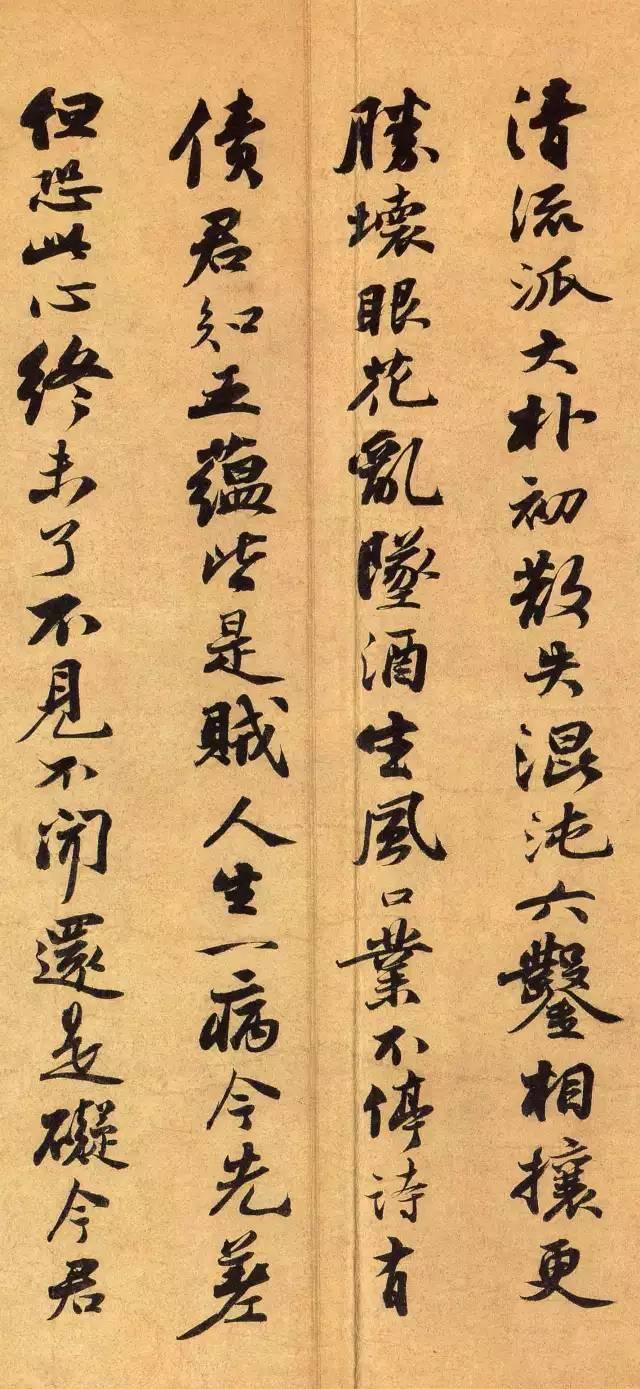 清流派大朴初散失混沌六鑿相攘更
勝壞眼花亂墜酒生風口業不停诗有
债君知五蘊皆是賊人生一病今先差
但恐此心终未了不見不闻還是礙今君